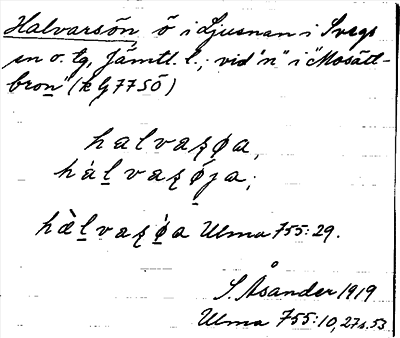 Halvarsön, ö i Ljusnan i Svegs
sn o. tg, Jämtl. l.; vid "n" i "Mosätt-
bron" (k G 77 SÖ)
halvaʂøa,
hàḷvaʂø̣ja;
hàḷvaʂøa Ulma 755:29.
S. Åsander 1919
Ulma 755:10, 27a. 53